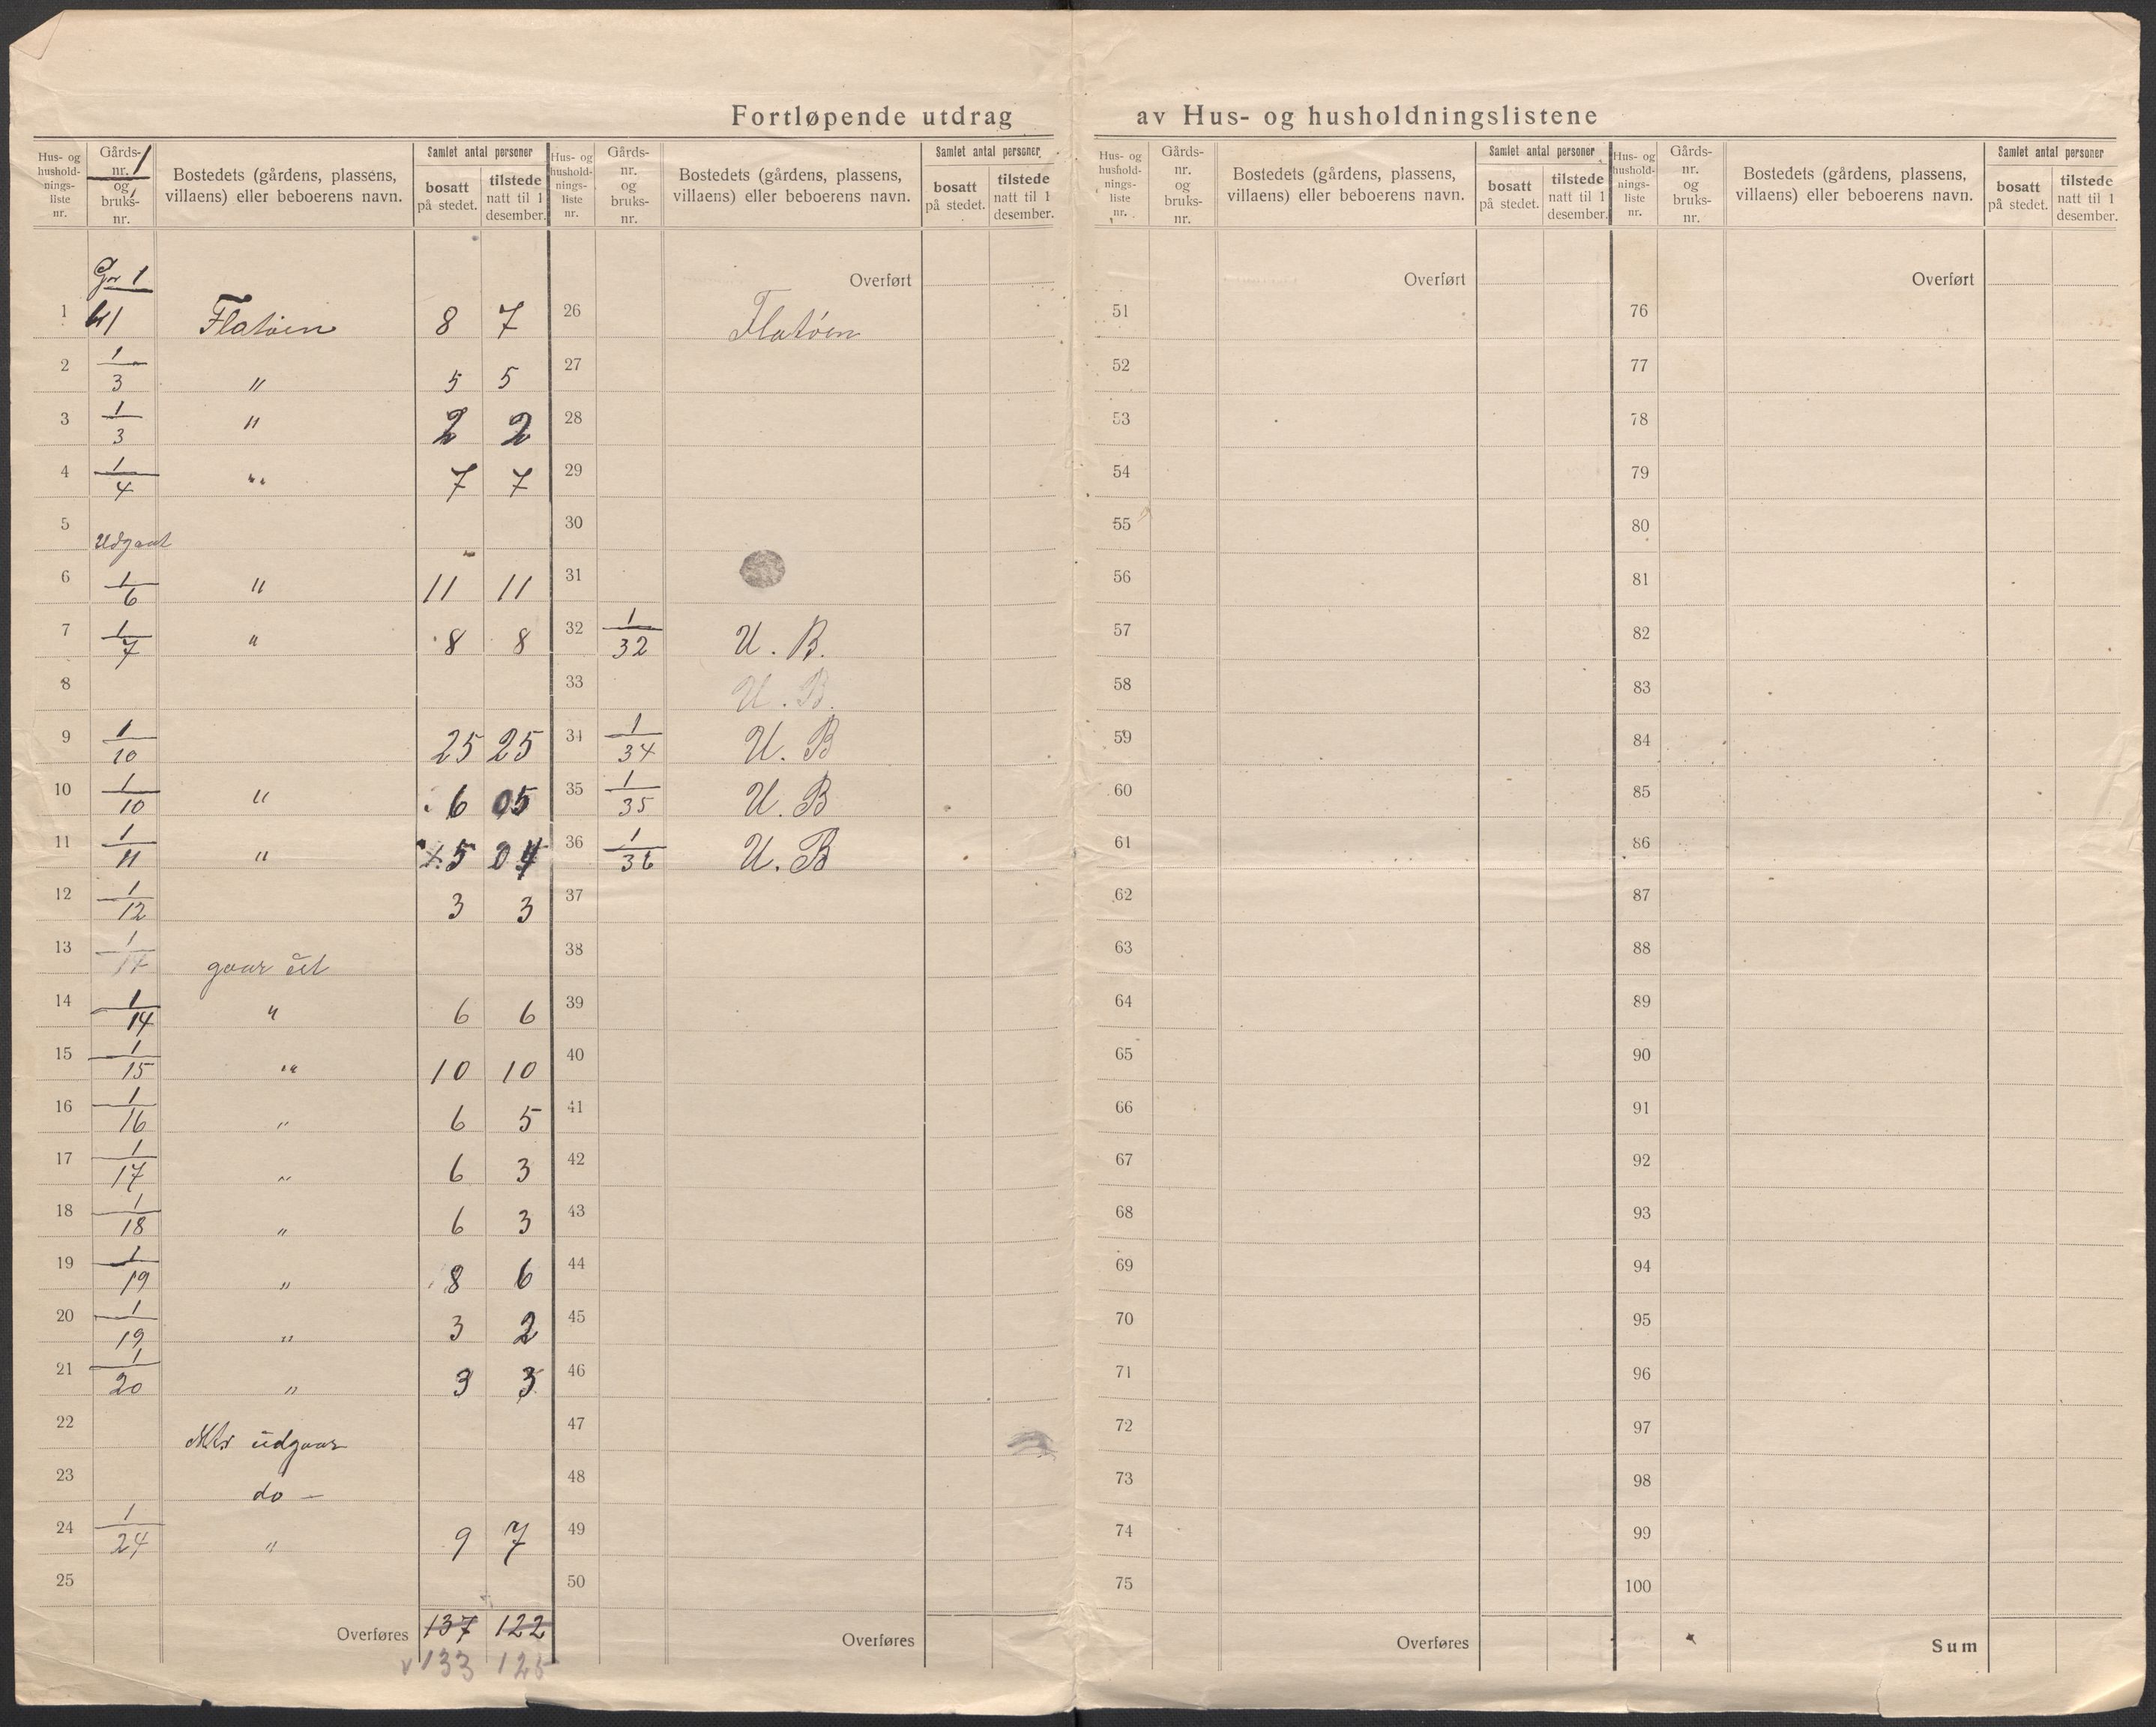 Fortløpende utdrag av Hus- og husholdningslistene
Hus- og hushold-nings-liste nr. | Gårds-nr. 1 og bruks-nr. | Bostedets (gårdens, plassens, villaens) eller beboerens navn. | Samlet antal personer | bosatt på stedet. | tilstede natt til 1 desember.
Hus- og hushold-nings-liste nr. | Gårds-nr. og bruks-nr. | Bostedets (gårdens, plassens, villaens) eller beboerens navn. | Samlet antal personer | bosatt på stedet. | tilstede natt til 1 desember.
Hus- og hushold-nings-liste nr. | Gårds-nr. og bruks-nr. | Bostedets (gårdens, plassens, villaens) eller beboerens navn. | Samlet antal personer | bosatt på stedet. | tilstede natt til 1 desember.
Hus- og hushold-nings-liste nr. | Gårds-nr. og bruks-nr. | Bostedets (gårdens, plassens, villaens) eller beboerens navn. | Samlet antal personer | bosatt på stedet. | tilstede natt til 1 desember.
Gr 1
1 Flatøen 8 7
2 1/3 " 5 5
3 1/3 " 2 2
4 1/4 " 7 7
5 Udgaat
6 1/6 " 11 11
7 1/7 " 8 8
8
9 1/10 25 25
10 1/10 " 6 5
11 1/11 " 5 4
12 1/12 3 3
13 1/14 gaar ut
14 1/14 " 6 6
15 1/15 " 10 10
16 1/16 " 6 5
17 1/17 " 6 3
18 1/18 " 6 3
19 1/19 " 8 6
20 1/19 " 3 2
21 1/20 " 3 3
22 udgaar
23 do —
24 1/24 " 9 7
25
Overføres 137 122
133 125
Overført
26 Flatøen
27
28
29
30
31
32 1/32 U. B.
33 U. B.
34 1/34 U. B
35 1/35 U. B
36 1/36 U. B
37
38
39
40
41
42
43
44
45
46
47
48
49
50
Overføres
Overført
51
52
53
54
55
56
57
58
59
60
61
62
63
64
65
66
67
68
69
70
71
72
73
74
75
Overføres
Overført
76
77
78
79
80
81
82
83
84
85
86
87
88
89
90
91
92
93
94
95
96
97
98
99
100
Sum